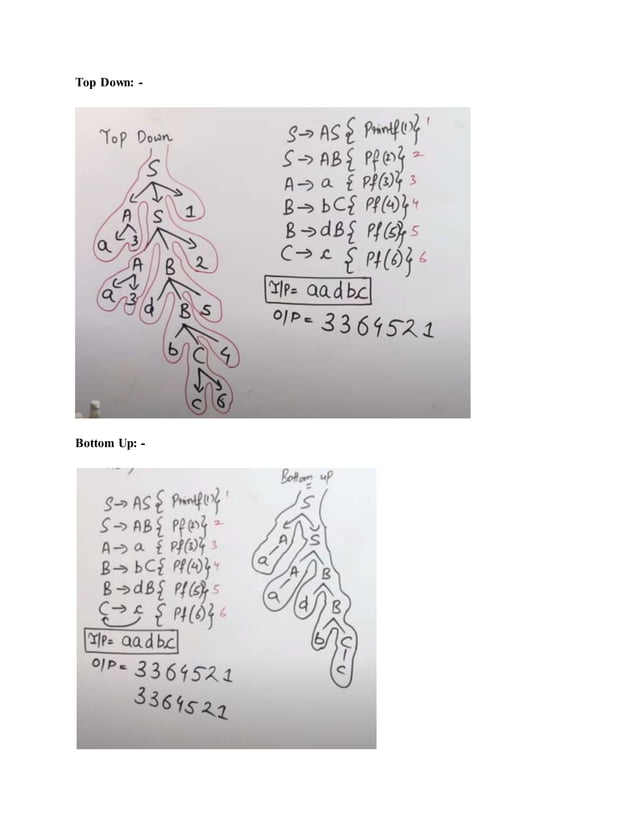 Top Down: -
Top Down
S
A S 1
a 3
A B 2
a 3 d B 5
b C 4
C 6
S→ AS{ Printf(1)} 1
S→ AB{ Pf(2)} 2
A→ a { Pf(3)} 3
B→ bC{ Pf(4)} 4
B→ dB{ Pf(5)} 5
C→ c { Pf(6)} 6
I/P= aadbc
O/P= 3364521
Bottom Up: -
Bottom up
S→ AS{ Printf(1)} 1
S→ AB{ Pf(2)} 2
A→ a { Pf(3)} 3
B→ bC{ Pf(4)} 4
B→ dB{ Pf(5)} 5
C→ c { Pf(6)} 6
I/P= aadbc
O/P= 3364521
3364521
S
A S
a A B
a d B
b C
C